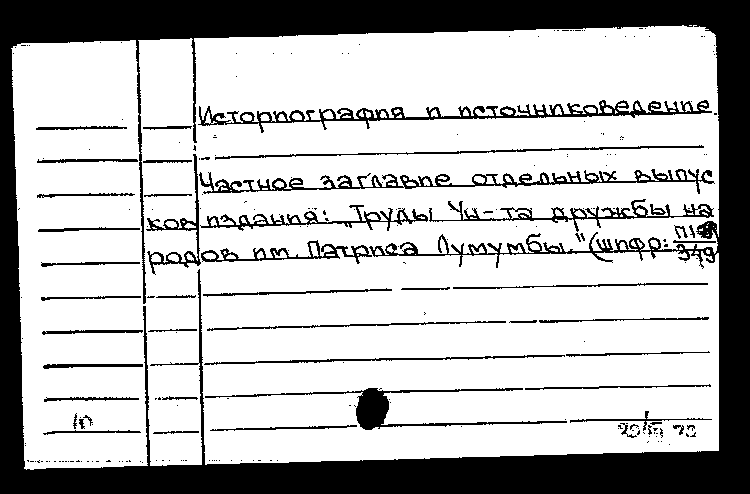 Историография и источниковедение.
Частное заглавие отдельных выпус
ков издания: „Труды Ун-та дружбы на
родов им. Патриса Лумумбы." (шифр: